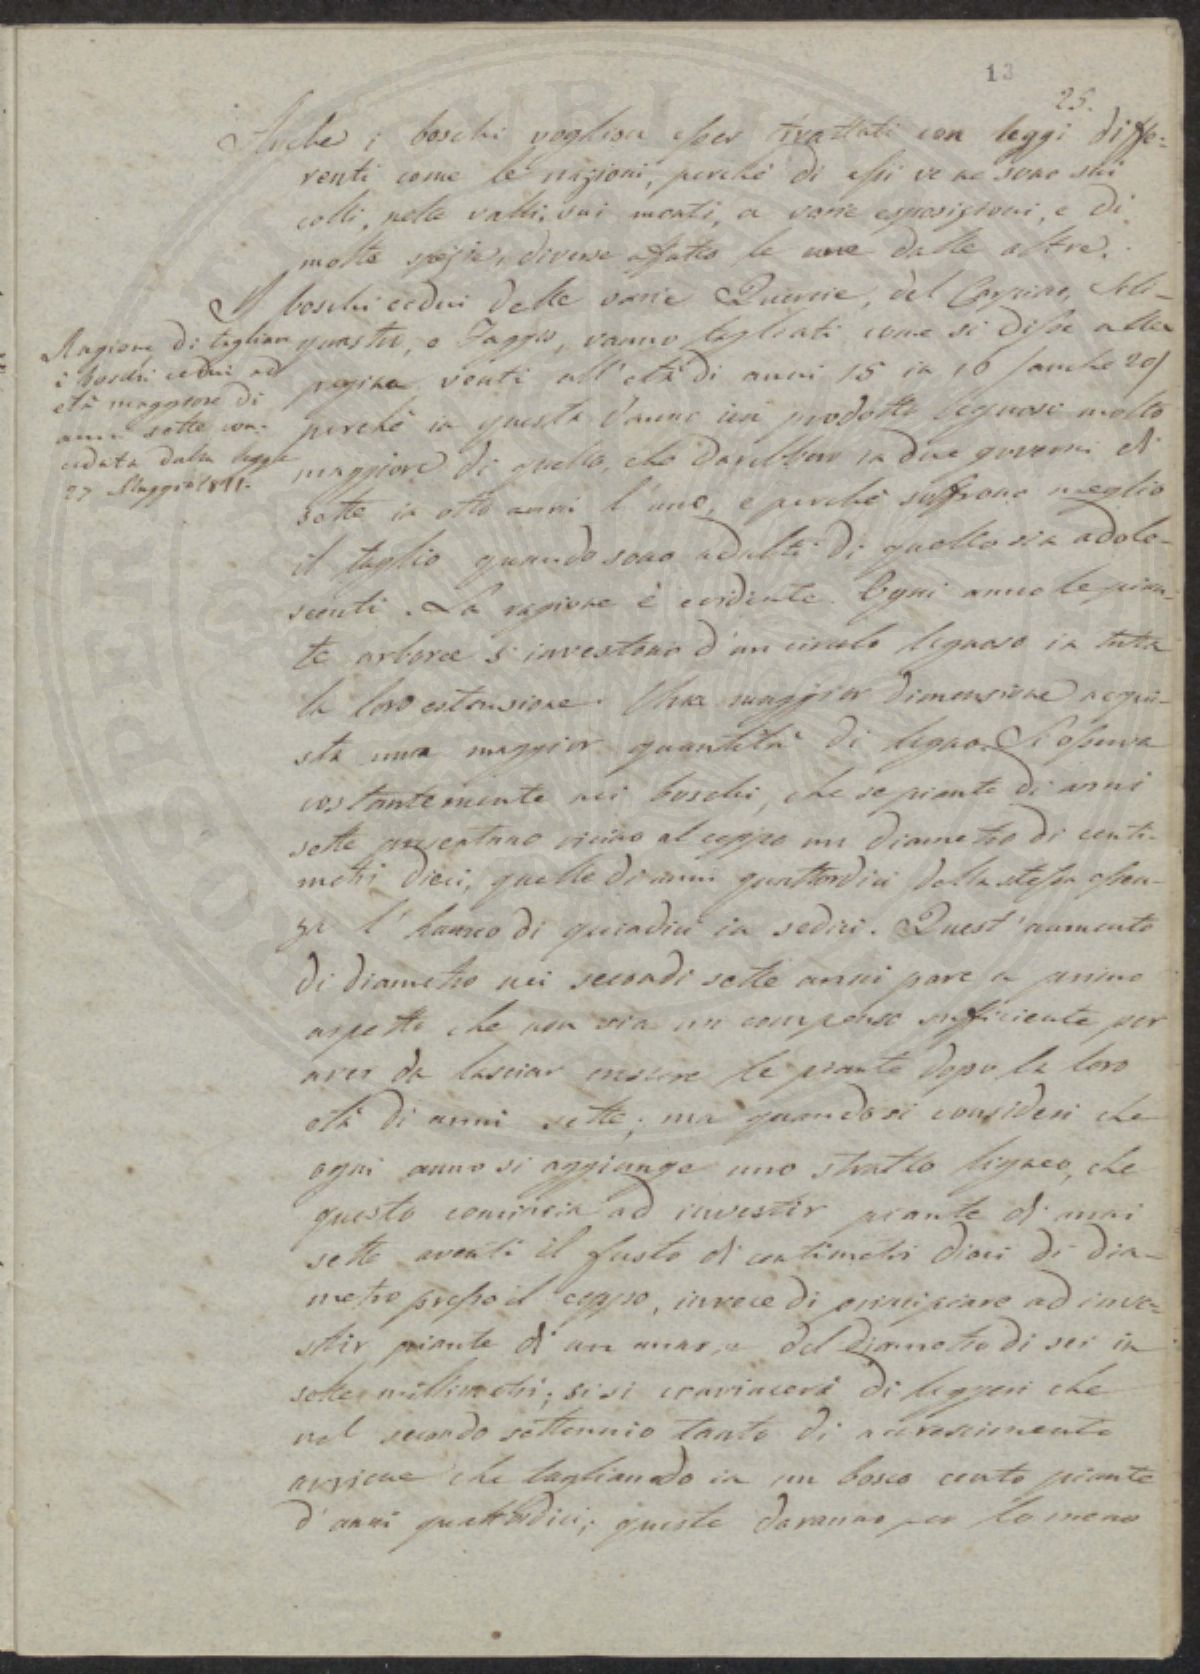 13
25.
Anche i boschi vogliono esser trattati con leggi diffe=
renti come le nazioni, perché di essi ve ne sono sui
colli, nelle valli, sui monti, a varie esposizioni, e di
molte spezie, diverse affatto le une dalle altre.
I boschi cedui delle varie Quercie, del Carpino,
o Faggio, vanno tagliati come si disse alla
pagina venti all'età di anni 15 in 16 /anche 20/
perché in questa danno un prodotto legnoso molto
maggiore di quello, che darebbero in due governi di
sette in otto anni l'uno, e perché soffrono meglio
il taglio quando sono adulti di quello sia adole-
scenti. La ragione è evidente. Ogni anno le pian-
te arboree s'investono d'un circolo legnoso in tutta
la loro estensione. Una maggior dimensione acqui-
sta una maggior quantità di legno. Si osserva
costantemente nei boschi, che se piante di anni
sette presentano vicino al ceppo un diametro di centi-
metri dieci, quelle di anni quattordici della stessa essen-
za l'hanno di quindici in sedici. Quest'aumento
di diametro nei secondi sette anni pare a primo
aspetto che non sia un compenso sufficiente per
aver da lasciar le piante dopo la loro
età di anni sette; ma quando si consideri che
ogni anno si aggiunge uno stratto ligneo, che
questo comincia ad investir piante di anni
sette aventi il fusto di centimetri dieci di dia-
metro presso il ceppo, invece di principiare ad inve=
stir piante di un anno, e del diametro di sei in
sette millimetri; si si convincerà di leggeri che
nel secondo settennio tanto di accrescimento
avviene che tagliando in un bosco cento piante
d'anni quattordici; queste daranno per lo meno
Ragione di tagliar
i boschi cedui ad
età maggiore di
anni sette con-
ceduta dalla legge
27 Maggio 1811.